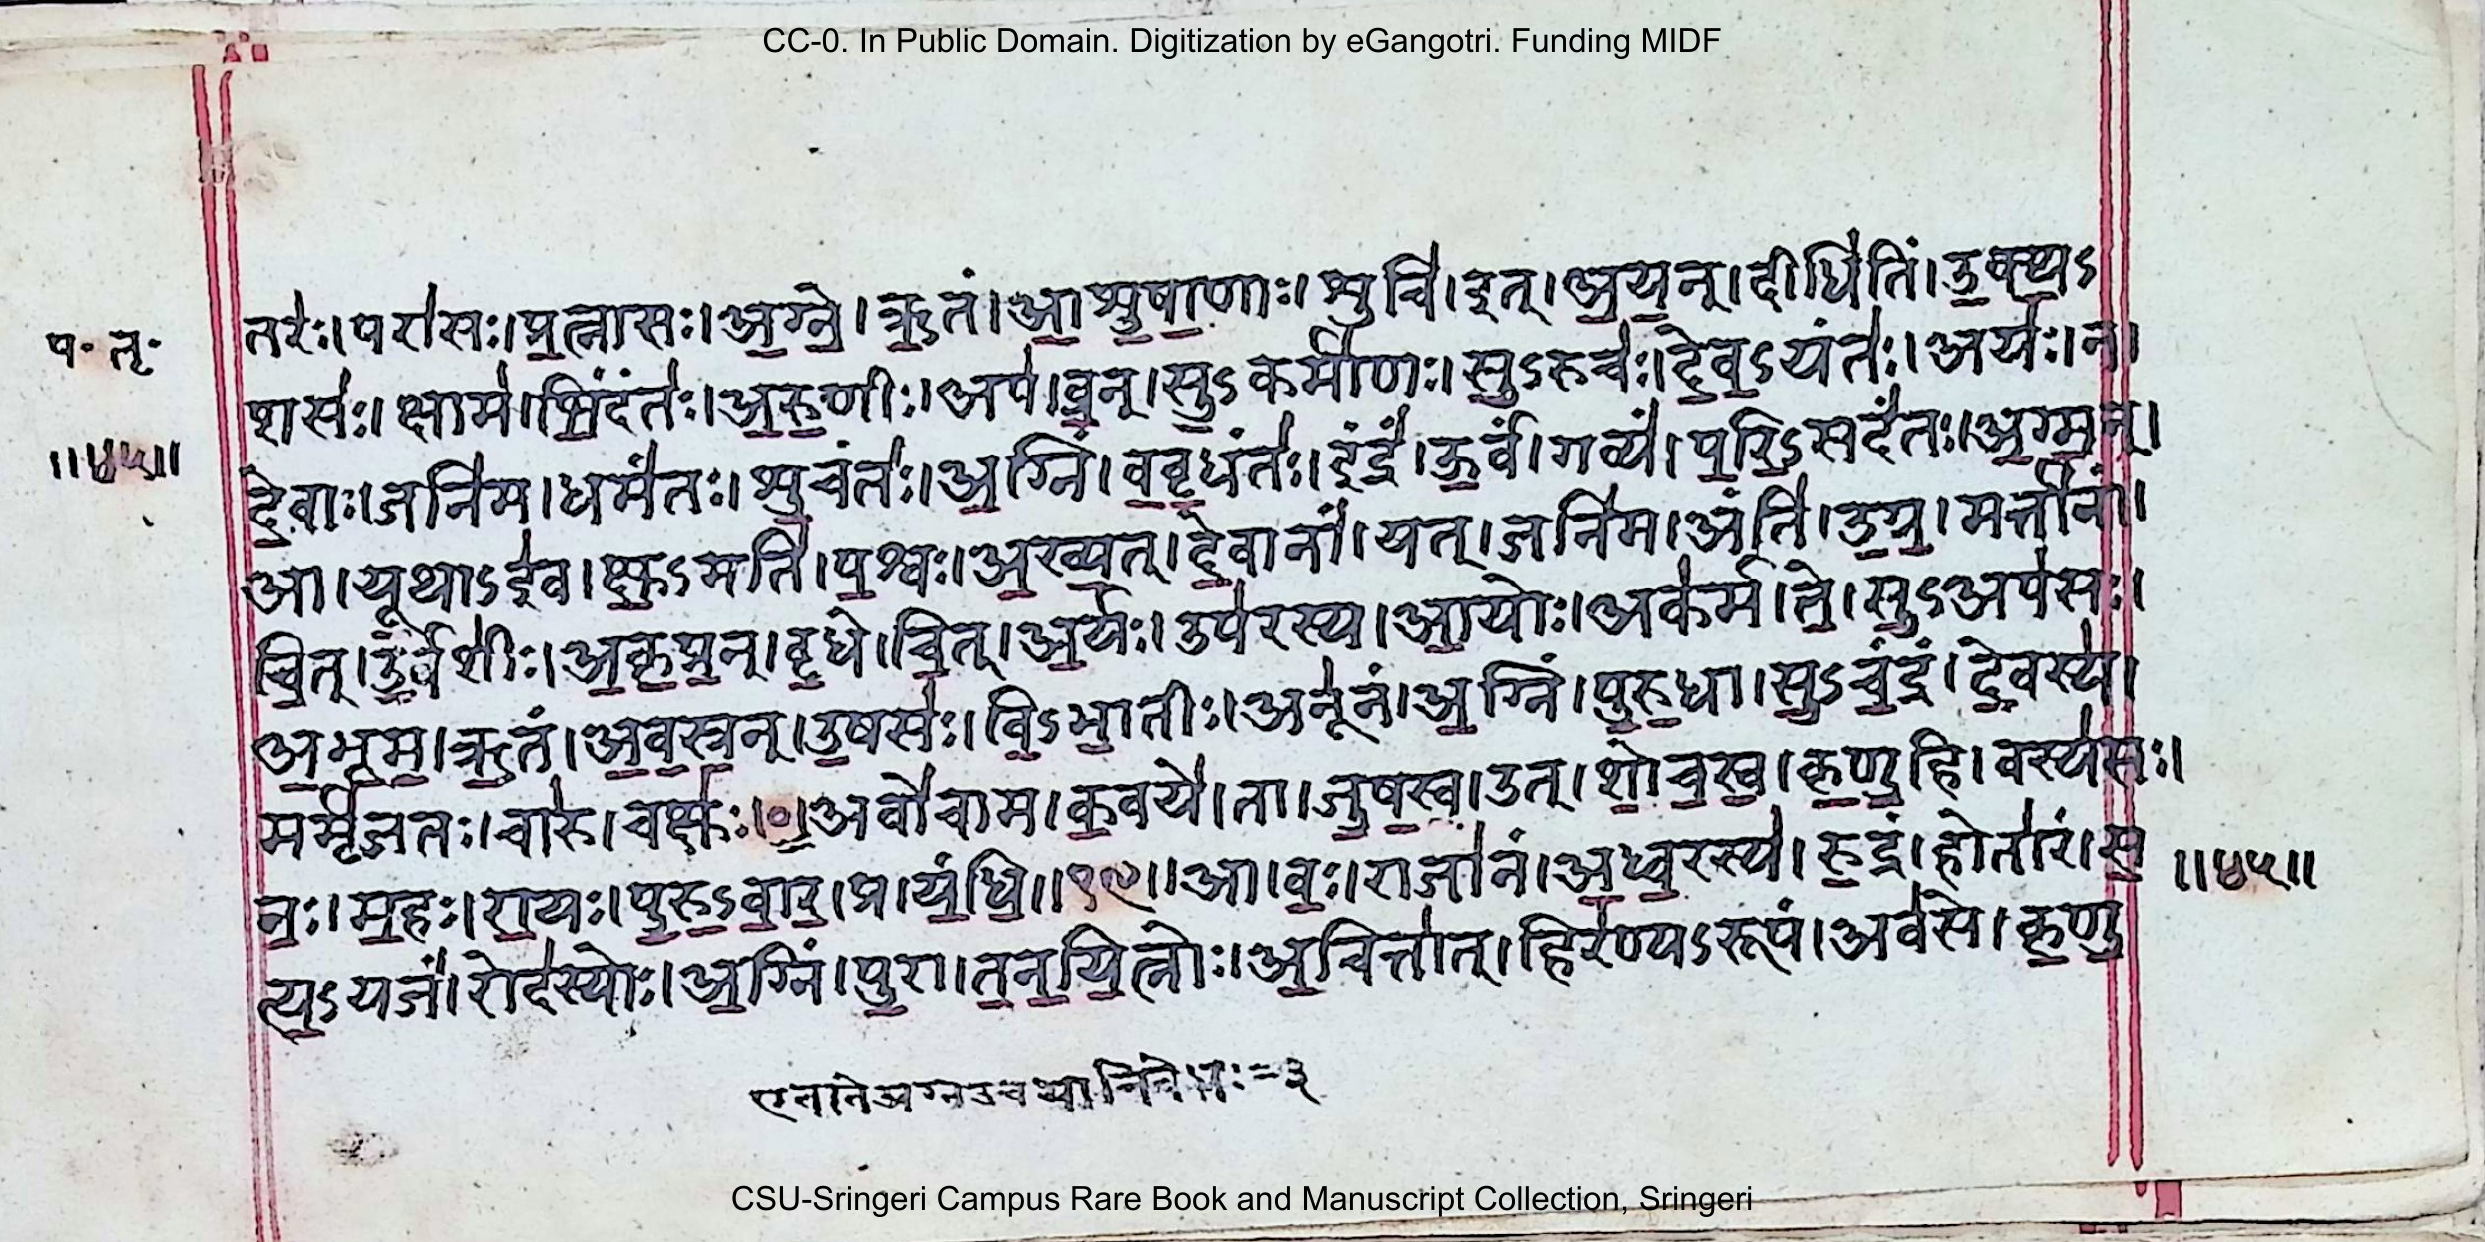 CC-0. In Public Domain. Digitization by eGangotri. Funding MIDF
तरः॑।परा॑सः।प्र॒त्नासः॑।अ॒ग्ने॒।ऋ॒तं।आ॒शु॒षा॒णाः।शुचि॑।इत्।अ॒य॒न्।दीधि॑तिं।उ॒क्थ॒ऽ
प॰ तृ॰
शसः॑।क्षाम॑।भिं॒दंतः॑।अ॒रु॒णीः।अप॑।व्र॒न्।सु॒ऽकर्मा॑णः।सु॒ऽरुचः॑।दे॒व॒ऽयंतः॑।अयः॑।न।
॥४५॥
दे॒वाः।जनि॑म।धमं॑तः।शु॒चंतः॑।अ॒ग्निं।व॒वृ॒धंतः॑।इंद्रं॑।ऊ॒र्वं।गव्यं॑।प॒रि॒ऽसदं॑तः।अ॒ग्म॒न्।
आ।यूथाऽइ॑व।क्षु॒ऽमति॑।प॒श्वः।अ॒ख्य॒त्।दे॒वानां॑।यत्।जनि॑म।अंति॑।उ॒ग्र॒।मर्ता॑नां।
चि॒त्।उ॒र्वशीः॑।अ॒कृ॒प्र॒न्।वृ॒धे।चि॒त्।अ॒र्यः।उप॑रस्य।आ॒योः।अक॑र्म।ते॒।सु॒ऽअप॑सः।
अ॒भू॒म॒।ऋ॒तं।अ॒व॒स्र॒न्।उ॒षसः॑।वि॒ऽभा॒तीः।अनू॑नं।अ॒ग्निं।पु॒रु॒धा।सु॒ऽचं॒द्रं।दे॒वस्य॑।
मर्मृ॑जतः।चारु॑।चक्षुः॑।०॒।अवो॑चाम।क॒वये॑।ता।जु॒ष॒स्व॒।उत्।शो॒च॒स्व॒।कृ॒णु॒हि।वस्य॑सः।
नः॒।म॒हः।रा॒यः।पु॒रु॒ऽवा॒र॒।प्र।यं॒धि॒॥१९॥आ।वः॒।राजा॑नं।अ॒ध्व॒रस्य॑।रु॒द्रं।होता॑रं।स॒
॥४५॥
त्य॒ऽयजं॑।रोद॑स्योः।अ॒ग्निं।पु॒रा।त॒न॒यि॒त्नोः।अ॒चित्ता॑त्।हिर॑ण्यऽरूपं।अव॑से।कृ॒णु॒
एतातेअग्नउचथानिवेधः=३
CSU-Sringeri Campus Rare Book and Manuscript Collection, Sringeri